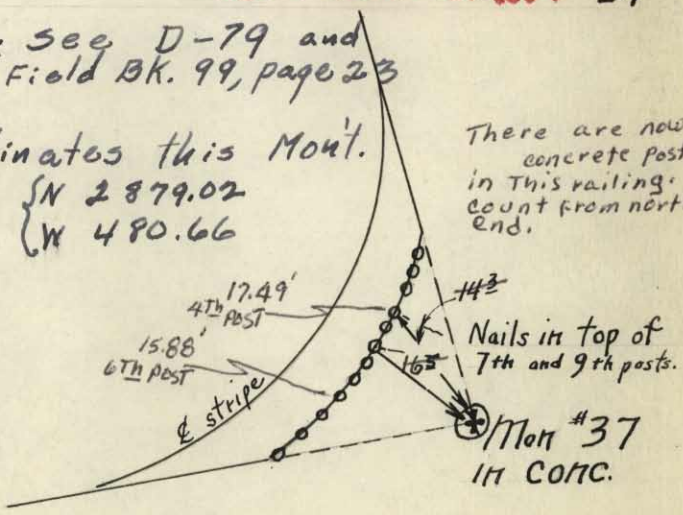 see D-79 and
Field BK. 99, page 23
this Mon't.
N 2879.02
W 480.66
There are now
concrete post
in This railing.
count from nort
end.
17.49'
4Th POST
15.88'
6Th POST
14³
16⁵
Nails in top of
7th and 9th posts.
℄ stripe
Mon #37
in Conc.